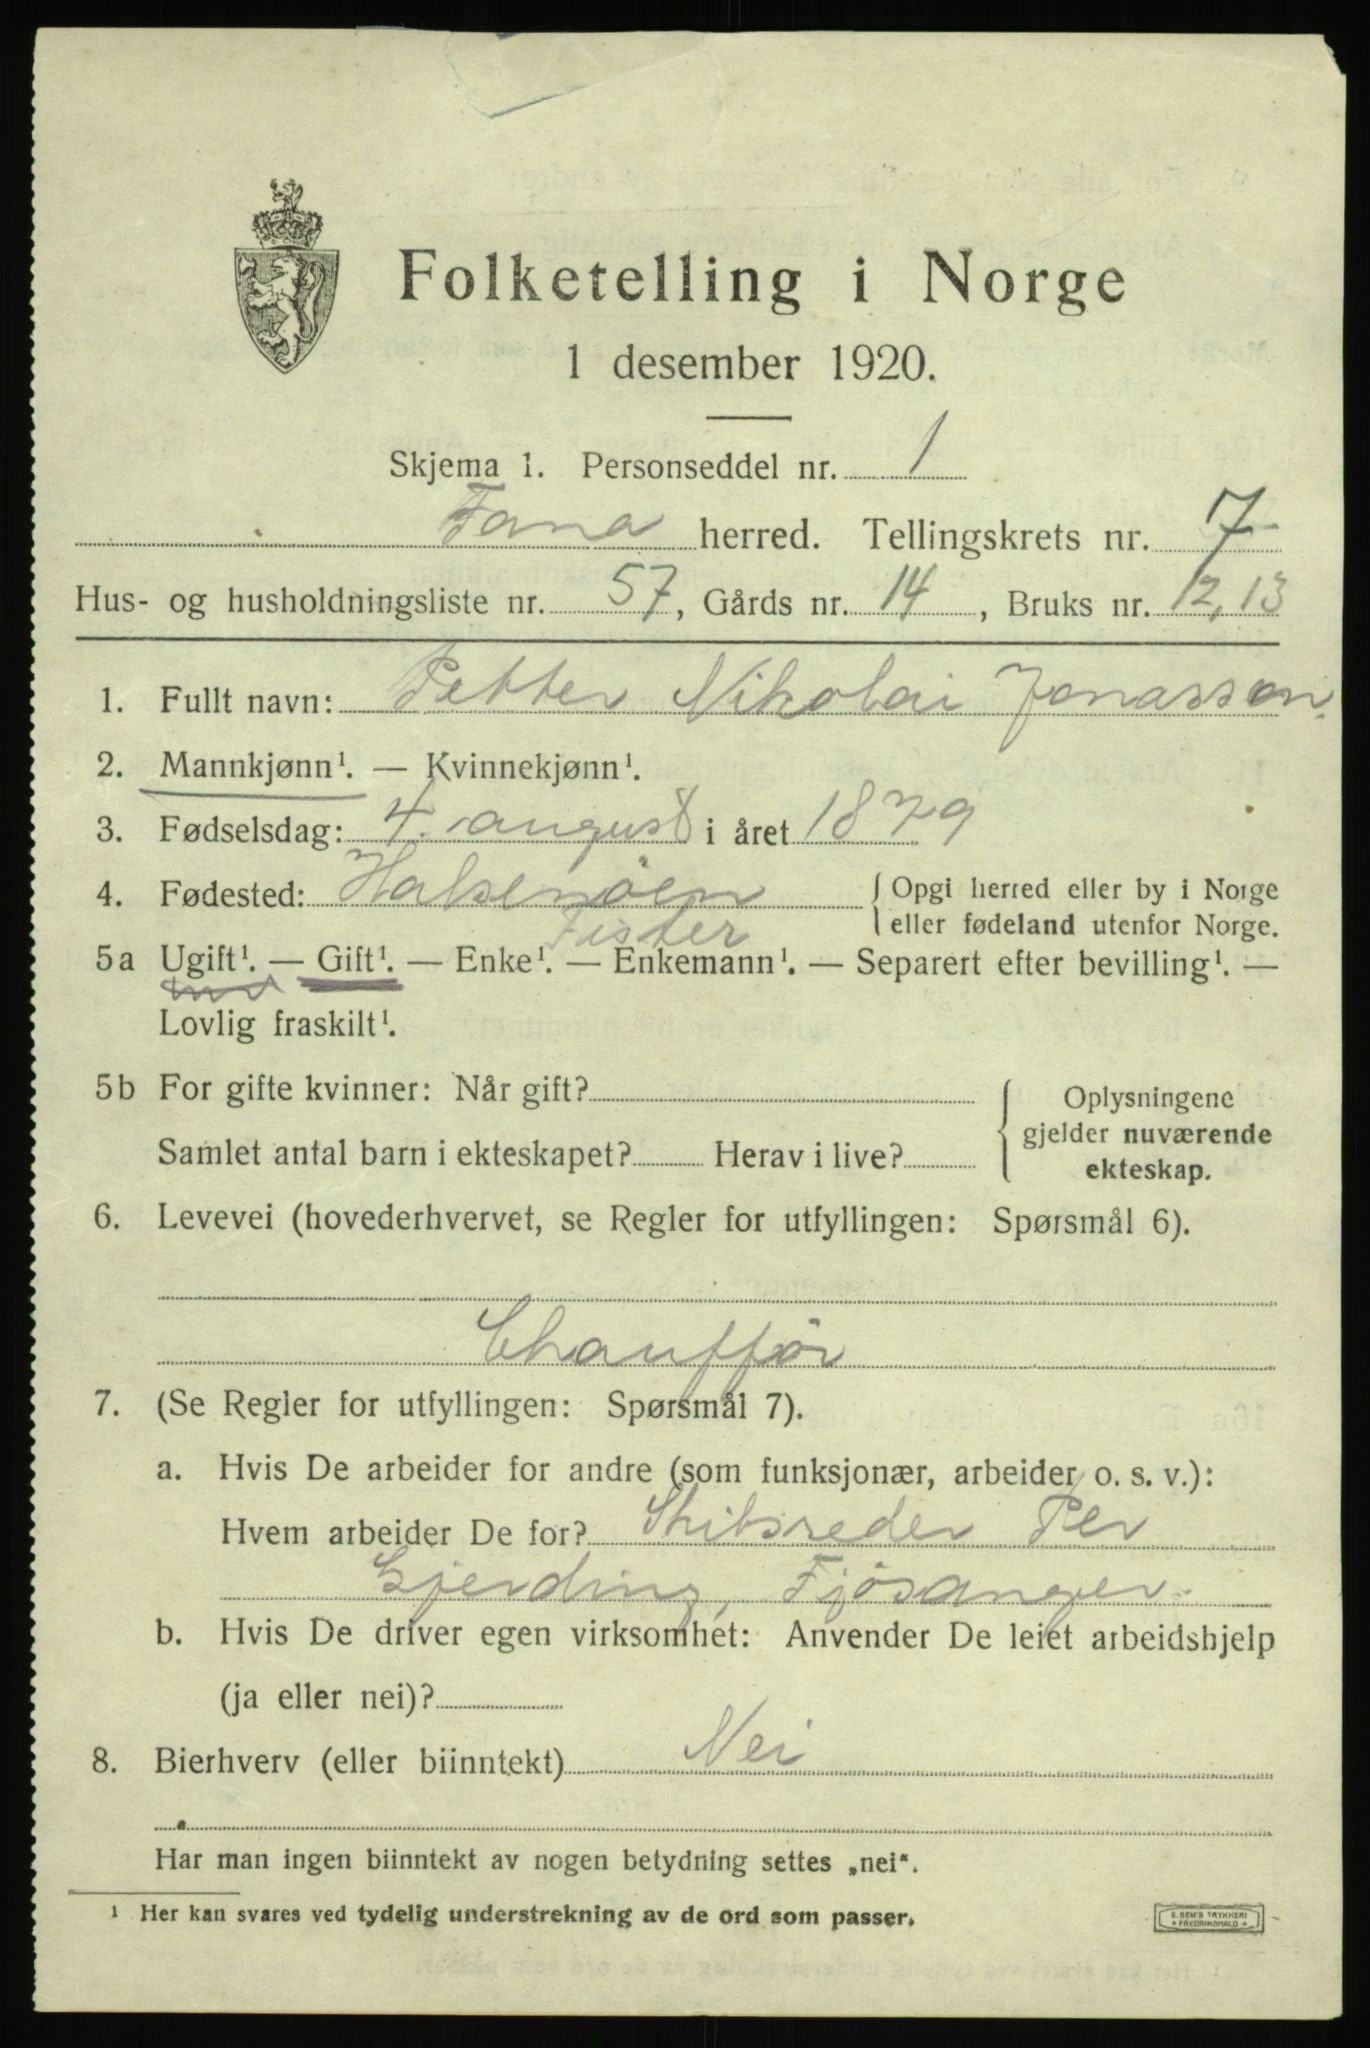 Folketelling i Norge
1 desember 1920.
Skjema 1. Personseddel nr. 1
Fana herred. Tellingskrets nr. 7
Hus- og husholdningsliste nr. 57, Gårds nr. 14, Bruks nr. 12, 13
1. Fullt navn: Petter Nikolai Jonassen.
2. Mannkjønn¹. — Kvinnekjønn¹.
3. Fødselsdag: 4. august i året 1879
4. Fødested: Halsenøen { Opgi herred eller by i Norge
Fister eller fødeland utenfor Norge.
5a Ugift¹. — Gift¹. — Enke¹. — Enkemann¹. — Separert efter bevilling¹. —
Lovlig fraskilt¹.
5b For gifte kvinner: Når gift? { Oplysningene
gjelder nuværende
Samlet antal barn i ekteskapet? Herav i live? ekteskap.
6. Levevei (hovederhvervet, se Regler for utfyllingen: Spørsmål 6).
Chauffør
7. (Se Regler for utfyllingen: Spørsmål 7).
a. Hvis De arbeider for andre (som funksjonær, arbeider o. s. v.):
Hvem arbeider De for? Skibsreder Per
Gjerding, Fjøsanger.
b. Hvis De driver egen virksomhet: Anvender De leiet arbeidshjelp
(ja eller nei)?
8. Bierhverv (eller biinntekt) Nei
Har man ingen biinntekt av nogen betydning settes „nei“.
¹ Her kan svares ved tydelig understrekning av de ord som passer.
E. SEM'S TRYKKERI
FREDRIKSHALD